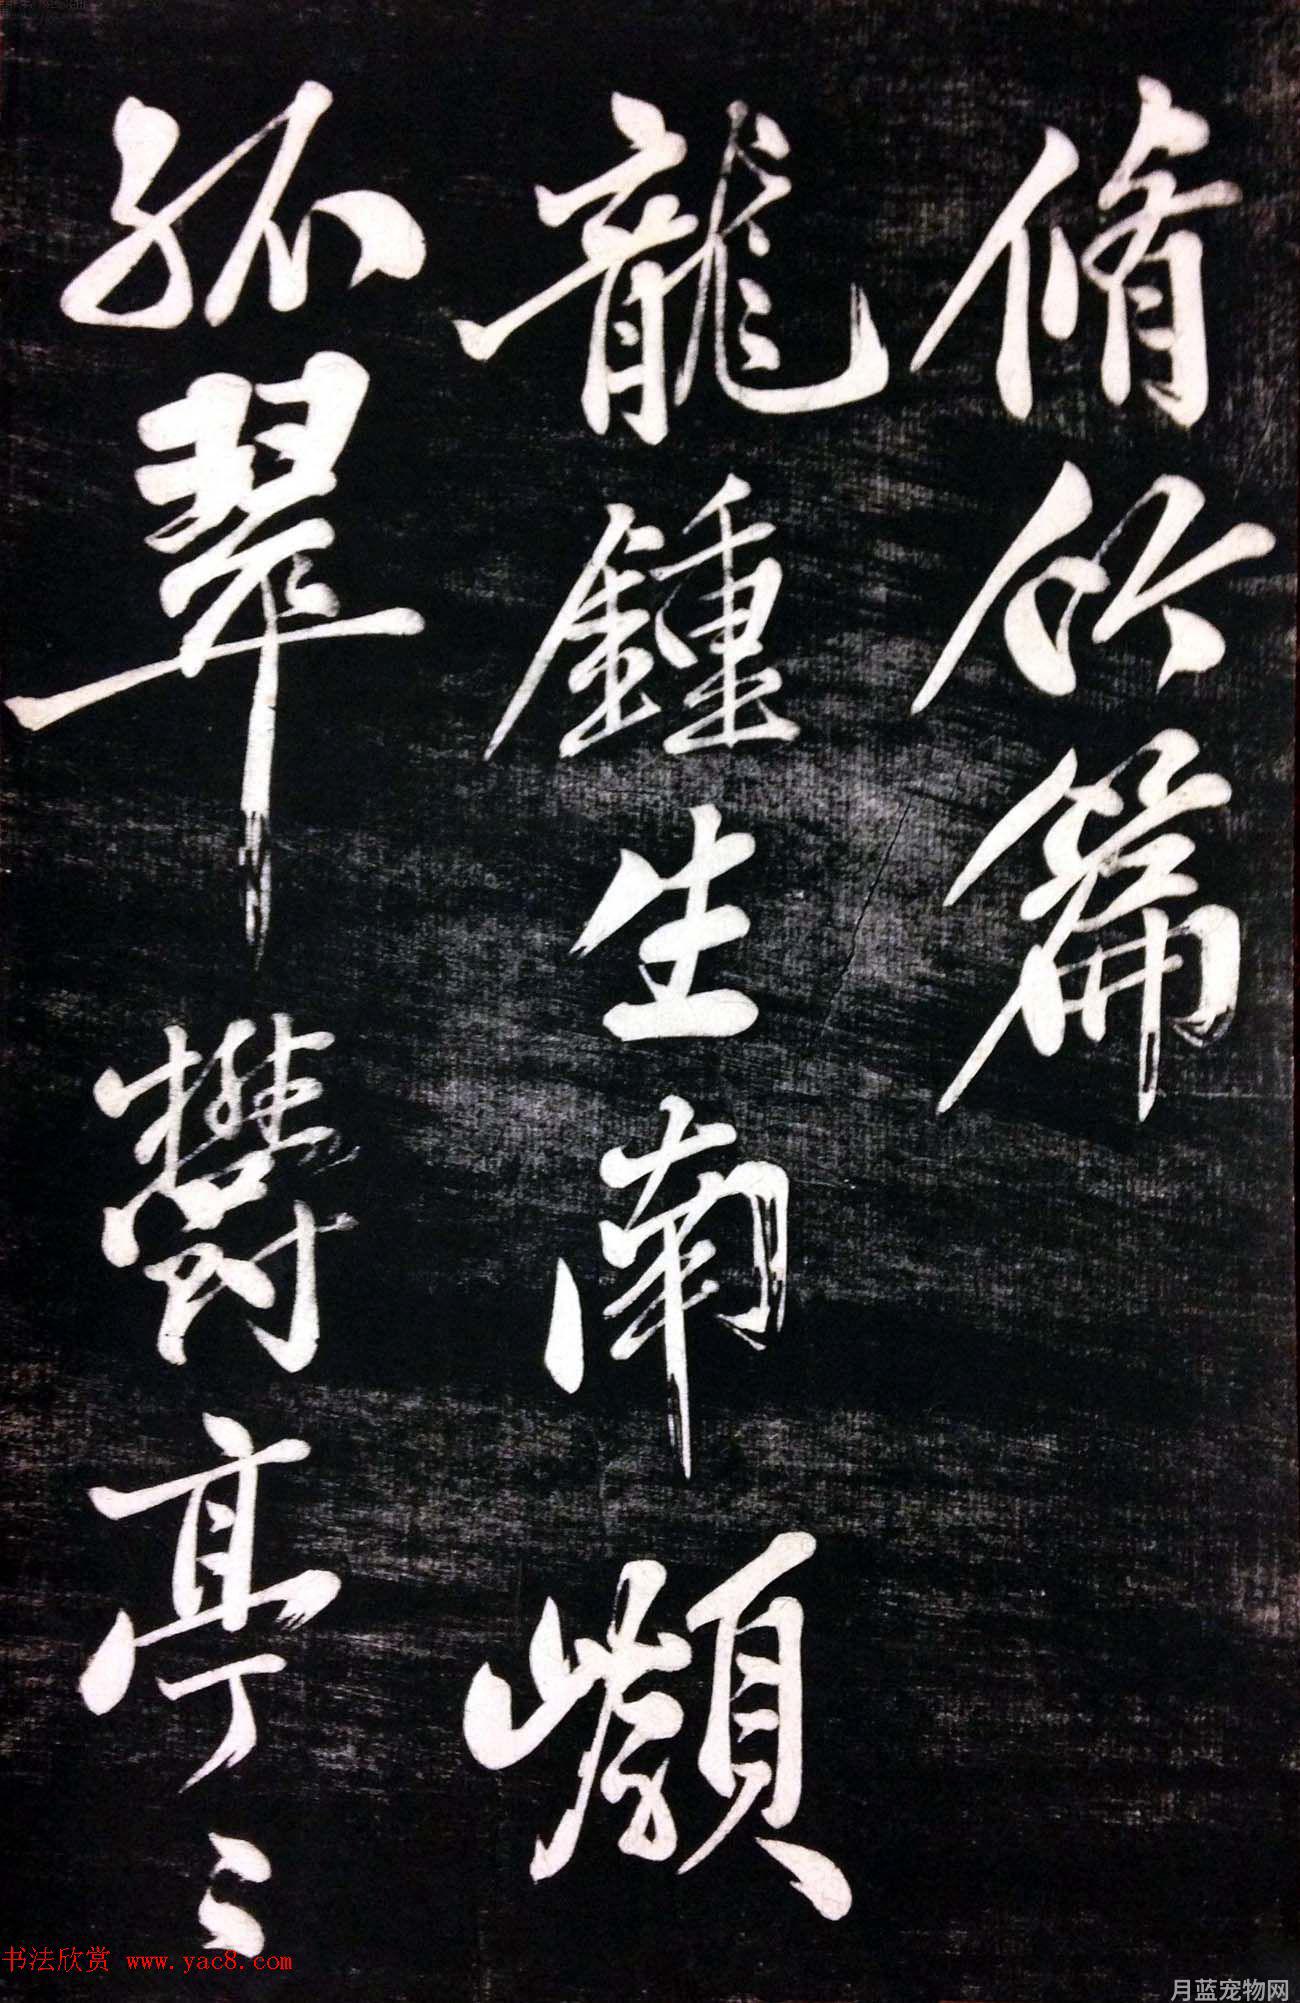 脩竹篇
龍鍾生南嶽
孤翠鬱亭亭
书法欣赏 www.yac8.com
月蓝宠物网